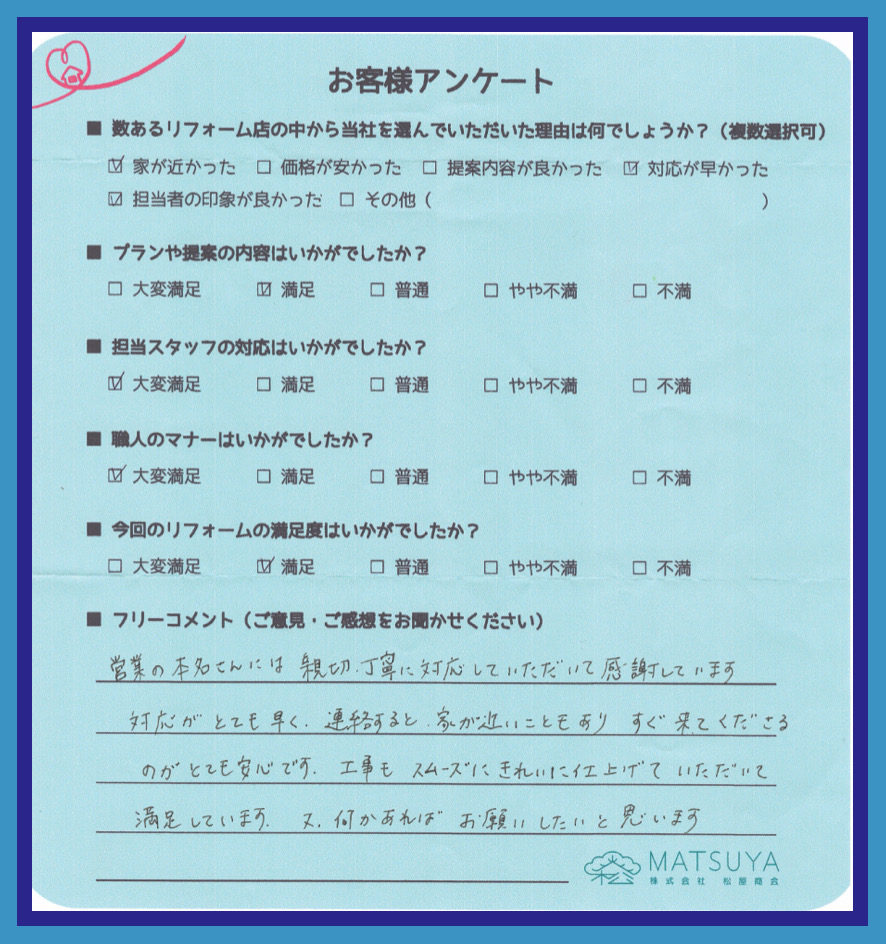 お客様アンケート
■ 数あるリフォーム店の中から当社を選んでいただいた理由は何でしょうか？（複数選択可）
☑ 家が近かった ☐ 価格が安かった ☐ 提案内容が良かった ☑ 対応が早かった
☑ 担当者の印象が良かった ☐ その他（ ）
■ プランや提案の内容はいかがでしたか？
☐ 大変満足 ☑ 満足 ☐ 普通 ☐ やや不満 ☐ 不満
■ 担当スタッフの対応はいかがでしたか？
☑ 大変満足 ☐ 満足 ☐ 普通 ☐ やや不満 ☐ 不満
■ 職人のマナーはいかがでしたか？
☑ 大変満足 ☐ 満足 ☐ 普通 ☐ やや不満 ☐ 不満
■ 今回のリフォームの満足度はいかがでしたか？
☐ 大変満足 ☑ 満足 ☐ 普通 ☐ やや不満 ☐ 不満
■ フリーコメント（ご意見・ご感想をお聞かせください）
営業の本名さんには 親切、丁寧に対応していただいて感謝しています
対応がとても早く、連絡すると、家が近いこともあり すぐ来てくださる
のがとても安心です。工事も スムーズにきれいに仕上げていただいて
満足しています。又、何かあれば お願いしたいと思います
MATSUYA
株式会社 松屋商会